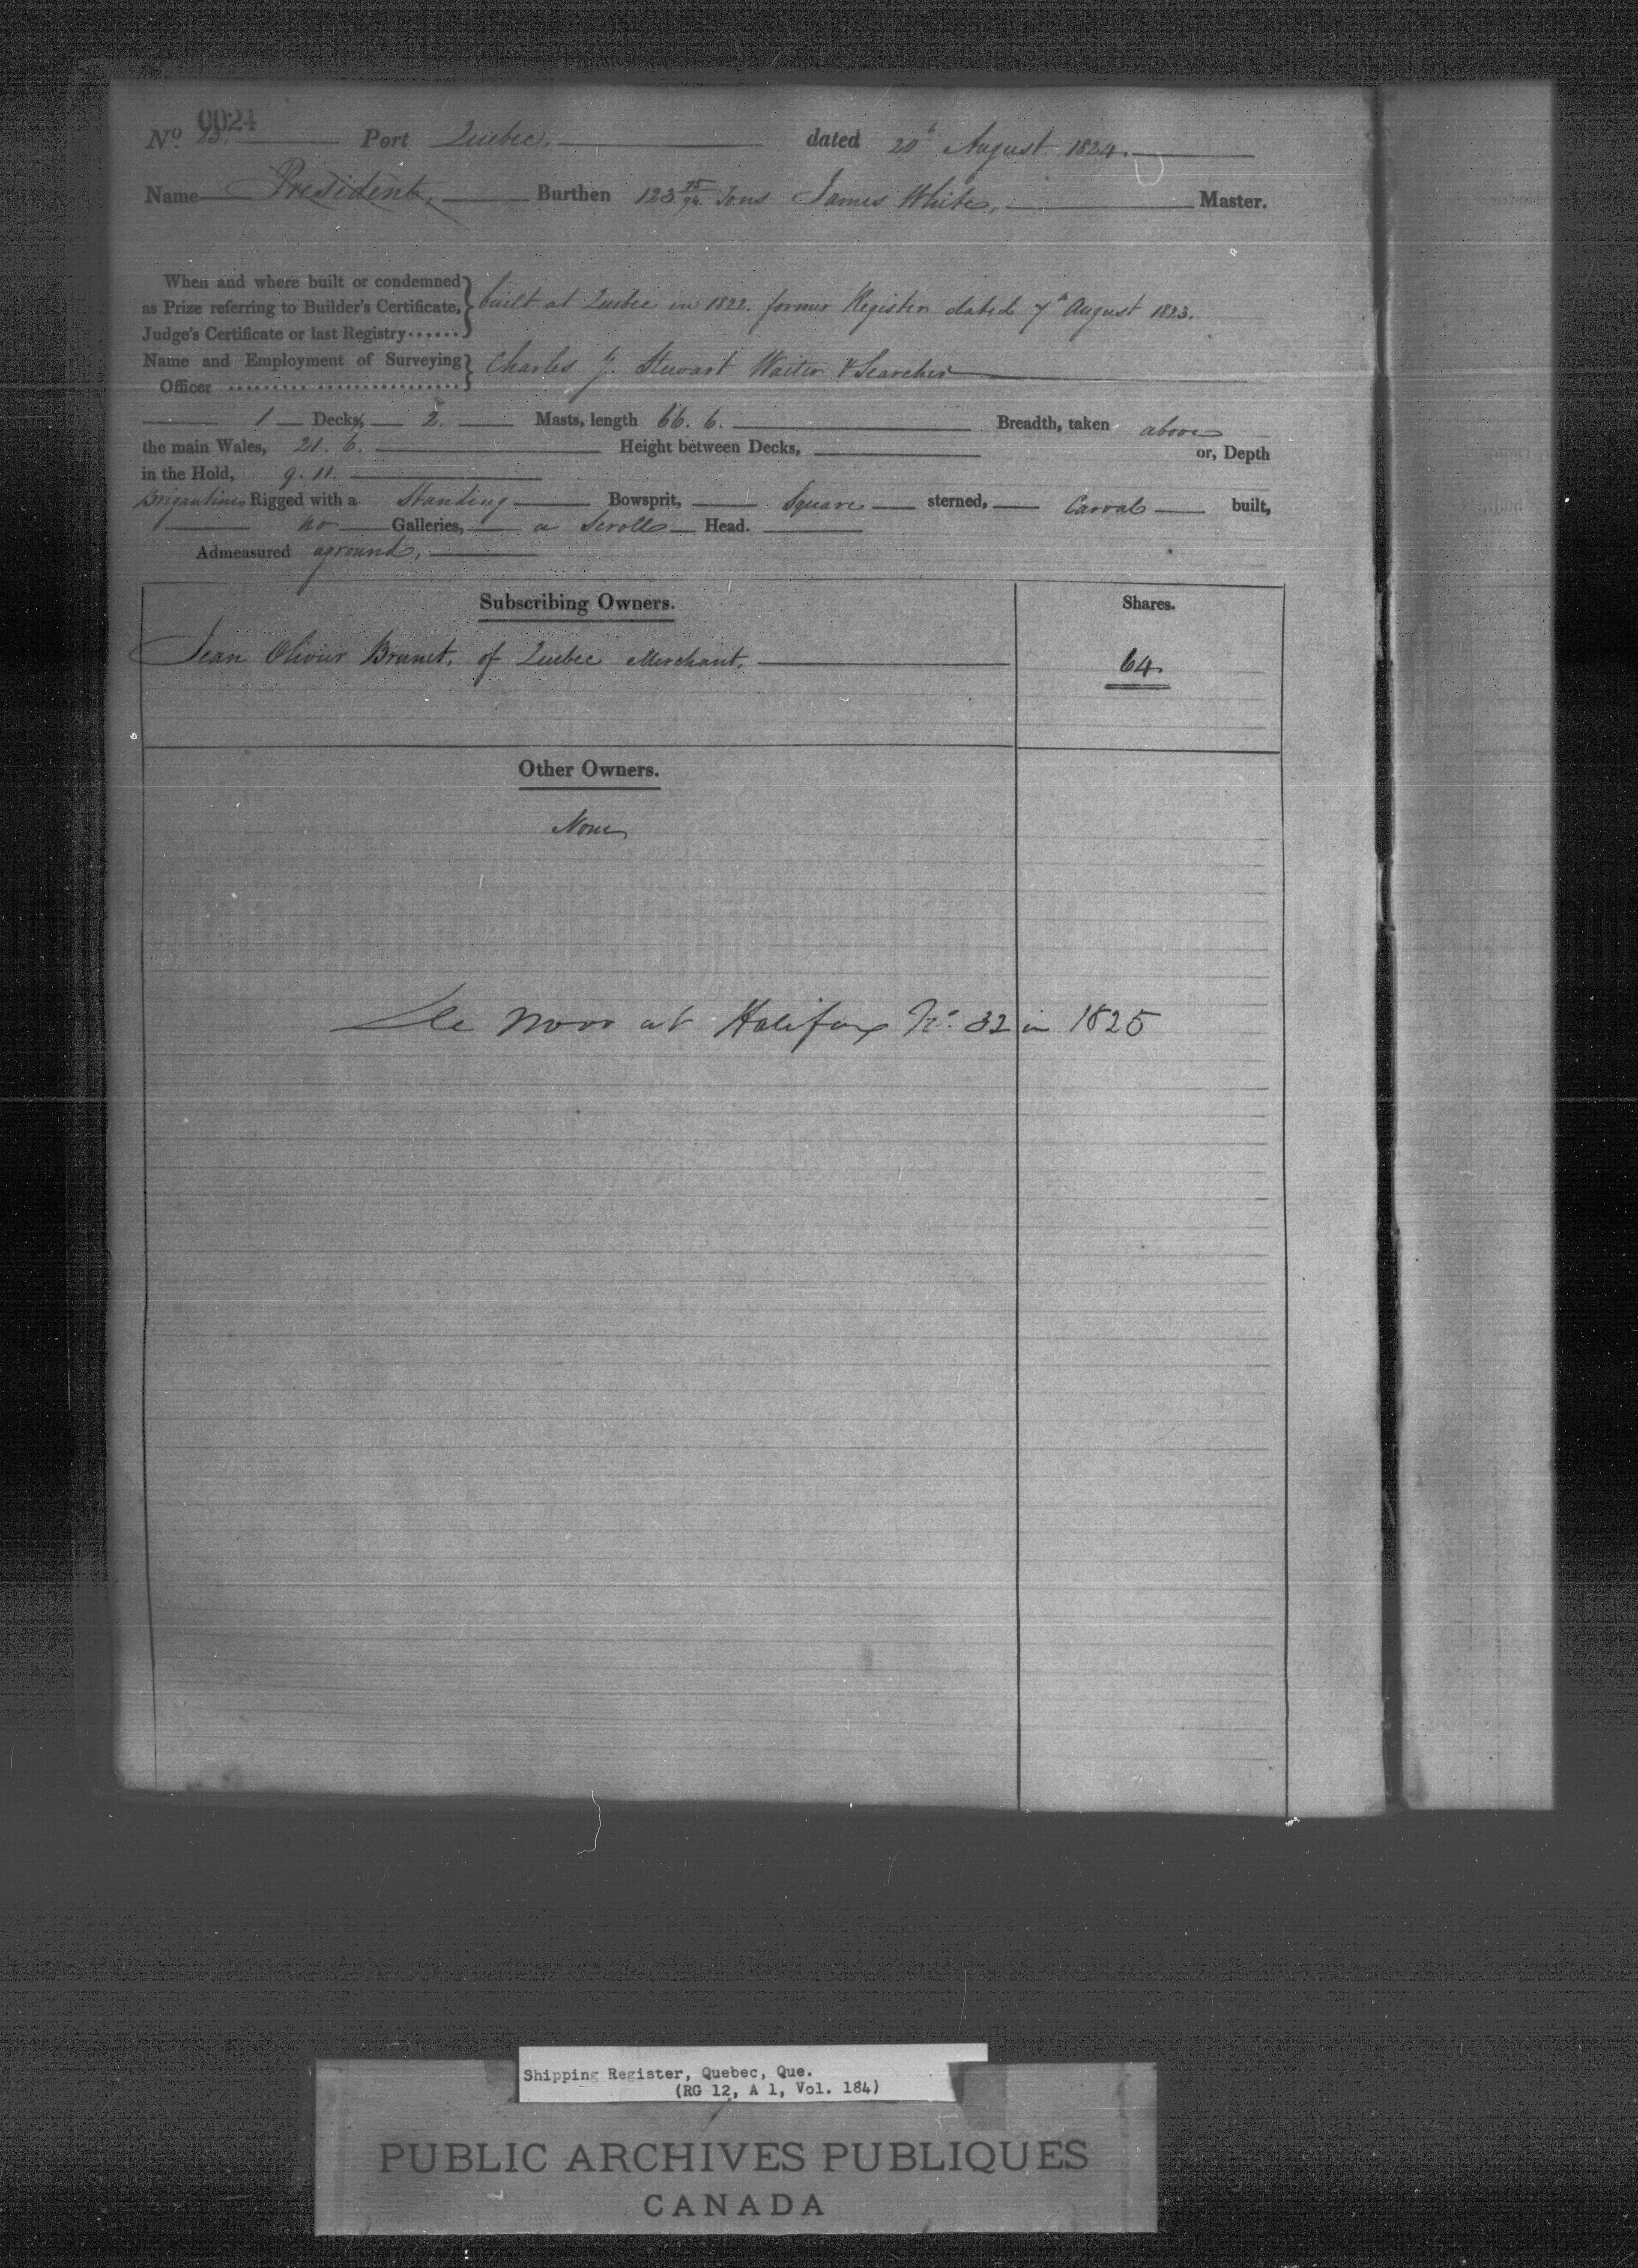 0024
No. 23. Port Quebec. dated 20th August 1824.
Name President, Burthen 123 75/94 Tons James White, Master.
When and where built or condemned
as Prize referring to Builder's Certificate, built at Quebec in 1822. former Register dated 7th August 1823.
Judge's Certificate or last Registry
Name and Employment of Surveying
Officer Charles J. Stewart Waiter & Searcher
1 Decks, 2. Masts, length 66. 6. Breadth, taken above
the main Wales, 21. 6. Height between Decks, or, Depth
in the Hold, 9. 11.
Brigantine Rigged with a Standing Bowsprit, Square sterned, Carval built,
no Galleries, a Scroll Head.
Admeasured aground,
Subscribing Owners. Shares.
Jean Olivier Brunet, of Quebec Merchant. 64.
Other Owners.
None
De Novo at Halifax No. 32 in 1825
Shipping Register, Quebec, Que.
(RG 12, A 1, Vol. 184)
PUBLIC ARCHIVES PUBLIQUES
CANADA